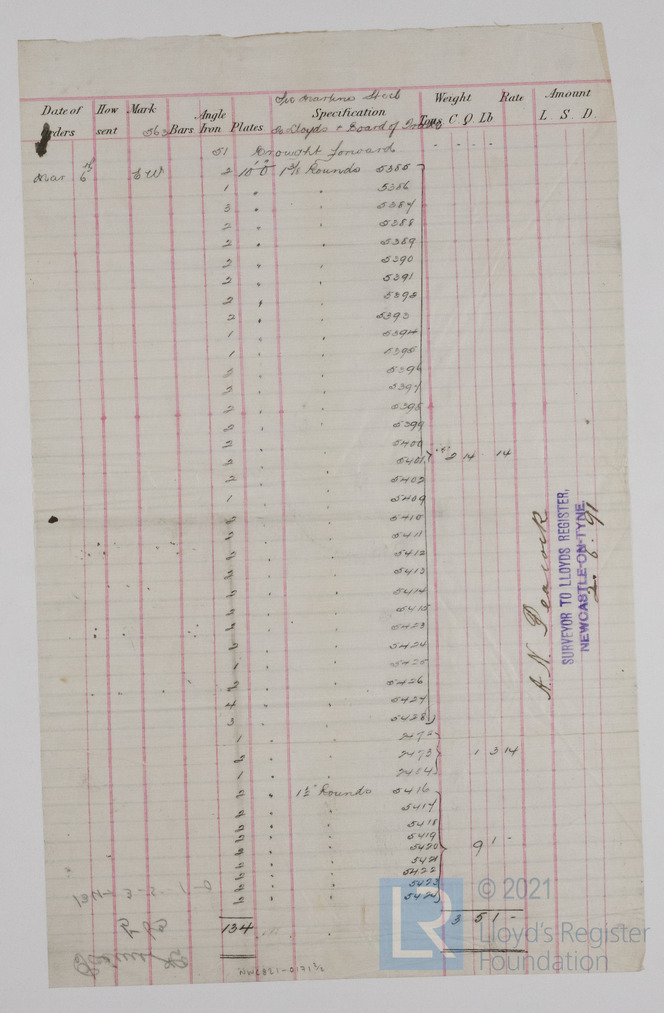 Steel
Date of Orders How sent Mark Bars Angle Iron Plates Specification Weight Tons C Q Lb Rate Amount L S D
Lloyds & Board of
51 Brought forward
Mar 6th 2 10' 0" 1 3/8 Rounds 5385
1 " " 5386
3 " " 5387
2 " " 5388
2 " " 5389
2 " " 5390
2 " " 5391
2 " " 5392
2 " " 5393
1 " " 5394
1 " " 5395
2 " " 5396
2 " " 5397
2 " " 5398
2 " " 5399
2 " " 5400
2 " " 5401 2 14 14
2 " " 5402
1 " " 5409
2 " " 5410
2 " " 5411
2 " " 5412
2 " " 5413
2 " " 5414
2 " " 5415
2 " " 5423
2 " " 5424
1 " " 5425
2 " " 5426
4 " " 5427
3 " " 5428
1 " " 2472
1 " " 2473 1 3 14
2 " "
2 " Rounds 5416
2 " " 5417
2 " " 5418
2 " " 5419
2 " " 5420 9 1 -
2 " " 5421
2 " " 5422
2 " " 5423
2 " " 5424
134 3 5 1 -
A. N. Peacock
SURVEYOR TO LLOYDS REGISTER,
NEWCASTLE-ON-TYNE
2. 6. 91
LR © 2021
Lloyd's Register
Foundation